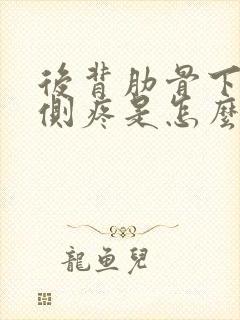 後背肋骨下
側疼是怎麼
龍魚兒